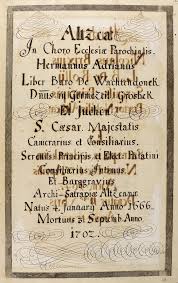 Altzeæ
In Choro Ecclesiæ Parochialis.
Hermannus Adrianus
Liber Baro De Wachtendonck
Dnus in Germezeil Grosbek
Et Julchen.
S. Cæsar. Majestatis
Camerarius et Consiliarius.
Serenis. Principis et Elect. Palatini
Consiliarius Intimus.
Et Burggravius
Archi-Satrapiæ Altzeanæ
Natus 4. January Anno 1666.
Mortuus 21 Septemb Anno
1702.